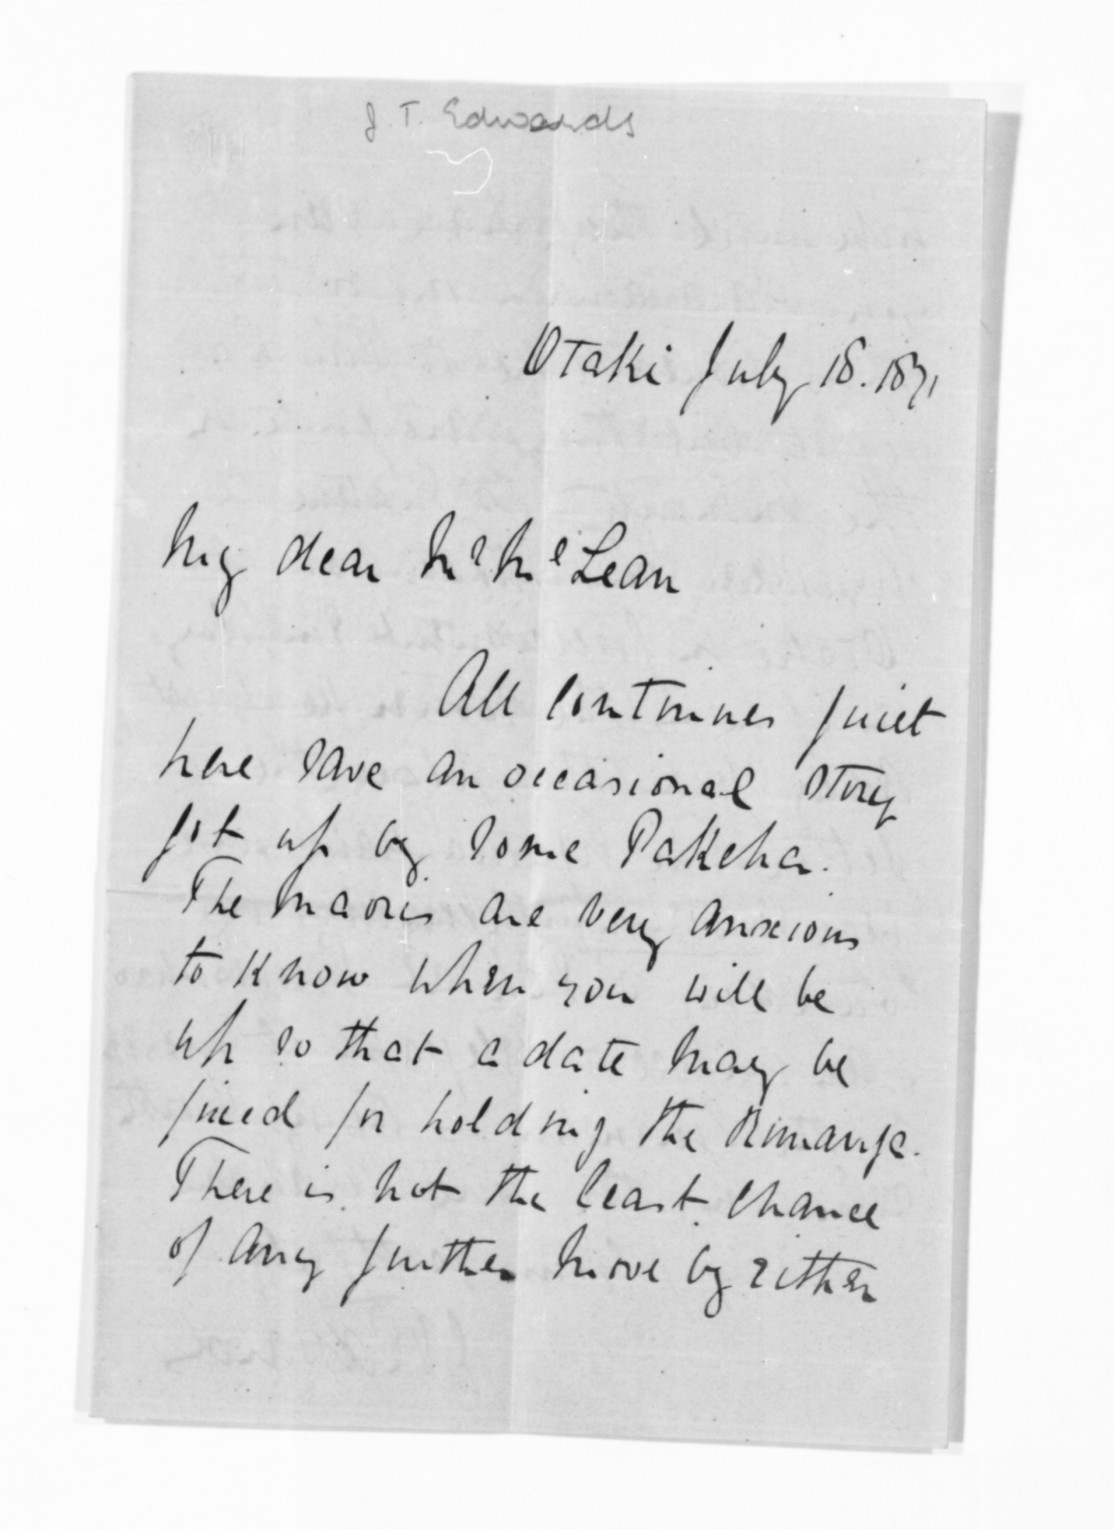 J. T. Edwards
Otaki July 18. 1871
My dear Mr McLean
All continues quiet
here save an occasional story
got up by some Pakeha.
The Maoris are very anxious
to know when you will be
up so that a date may be
fixed for holding the Runanga.
There is not the least chance
of any further move by either